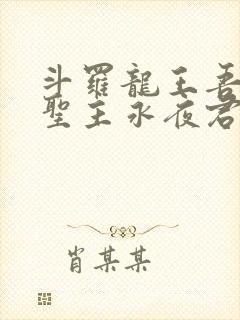 斗羅龍王吾
聖主永夜君
肖某某